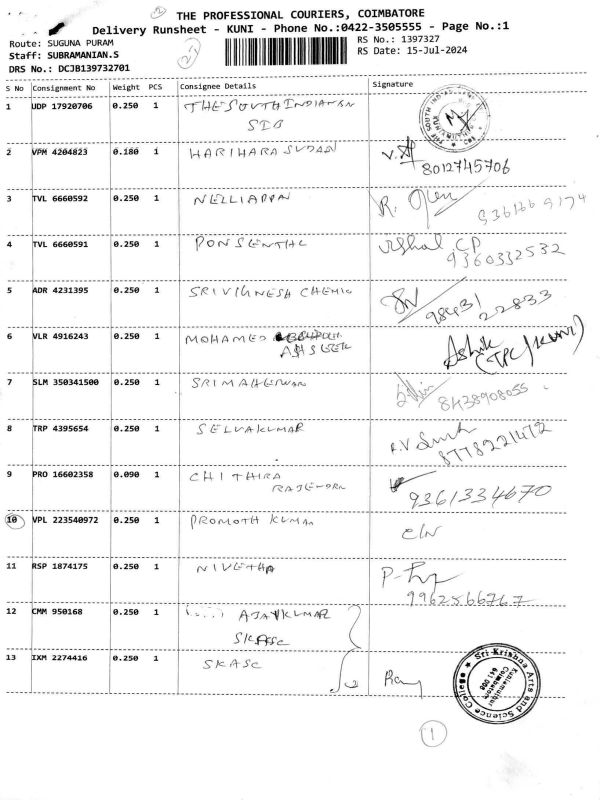 2
THE PROFESSIONAL COURIERS, COIMBATORE
Delivery Runsheet - KUNI - Phone No.:0422-3505555 - Page No.:1
Route: SUGUNA PURAM
RS No.: 1397327
Staff: SUBRAMANIAN.S
RS Date: 15-Jul-2024
DRS No.: DCJB139732701
S No Consignment No Weight PCS Consignee Details Signature
1 UDP 17920706 0.250 1 THE SOUTH INDIAN
SIB
2 VPM 4204823 0.180 1 HARIHARA SUDAN
8012745706
3 TVL 6660592 0.250 1 NELLIAPPA
R.
4 TVL 6660591 0.250 1 PONSENTHL
Vishal.CP
9360332532
5 ADR 4231395 0.250 1 SRIVIGNESH CHEMIC
98431
22833
6 VLR 4916243 0.250 1 MOHAMED
ASHEEK
Ashik
(TPC/KUNI)
7 SLM 350341500 0.250 1
8438908055
8 TRP 4395654 0.250 1 SELVAKUMAR
8778221472
9 PRO 16602358 0.090 1 CHITHIRA
RAJENDRN
9361334670
10 VPL 223540972 0.250 1 PROMOTH KUMAR
11 RSP 1874175 0.250 1 NIVETHA
9962566767
12 CMM 950168 0.250 1 AJAYKUMAR
SKASC
13 IXM 2274416 0.250 1 SKASC
2
Sri Krishna Arts and Science College
Kuniamuthur
Coimbatore
641 008
1